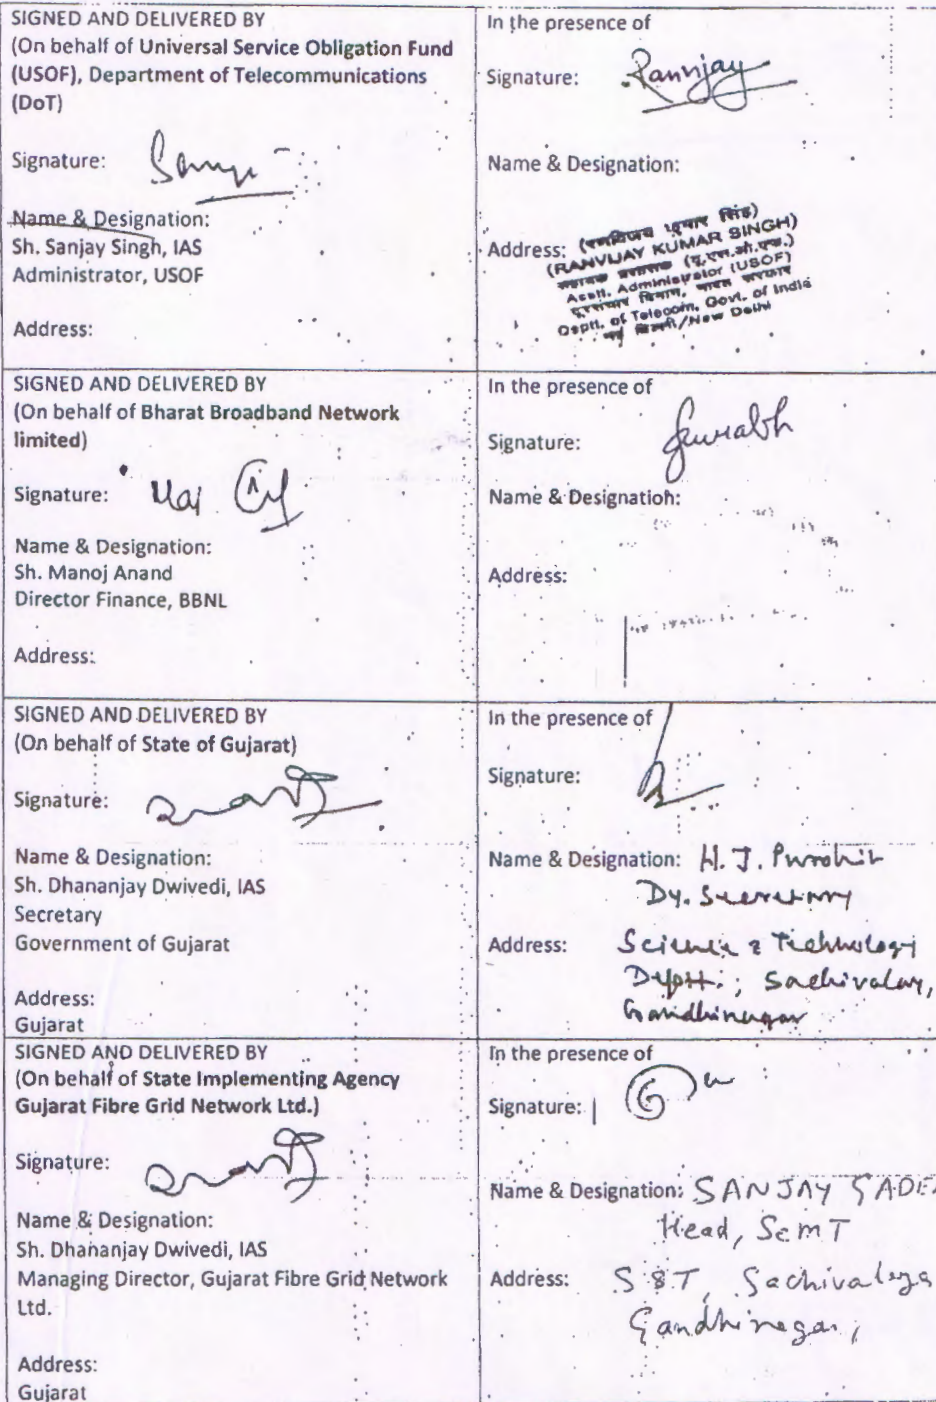 SIGNED AND DELIVERED BY
(On behalf of Universal Service Obligation Fund
(USOF), Department of Telecommunications
(DoT)
Signature:
Name & Designation:
Sh. Sanjay Singh, IAS
Administrator, USOF
Address:
In the presence of
Signature: Ranvijay
Name & Designation:
Address:
(RANVIJAY KUMAR SINGH)
Asstt. Administrator (USOF)
Deptt. of Telecom, Govt. of India
/New Delhi
SIGNED AND DELIVERED BY
(On behalf of Bharat Broadband Network
limited)
Signature:
Name & Designation:
Sh. Manoj Anand
Director Finance, BBNL
Address:
In the presence of
Signature: Saurabh
Name & Designation:
Address:
SIGNED AND DELIVERED BY
(On behalf of State of Gujarat)
Signature:
Name & Designation:
Sh. Dhananjay Dwivedi, IAS
Secretary
Government of Gujarat
Address:
Gujarat
In the presence of
Signature:
Name & Designation: H. J. Purohit
Dy. Secretary
Address: Science & Technology
Deptt.; Sachivalay,
Gandhinagar
SIGNED AND DELIVERED BY
(On behalf of State Implementing Agency
Gujarat Fibre Grid Network Ltd.)
Signature:
Name & Designation:
Sh. Dhananjay Dwivedi, IAS
Managing Director, Gujarat Fibre Grid Network
Ltd.
Address:
Gujarat
In the presence of
Signature:
Name & Designation: SANJAY GADE
Head, SeMT
Address: S&T, Sachivalaya
Gandhinagar,